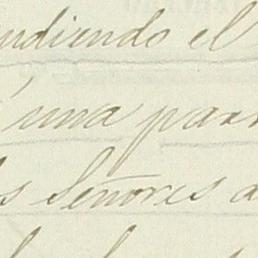 ndiendo el
una parr
s Señores a